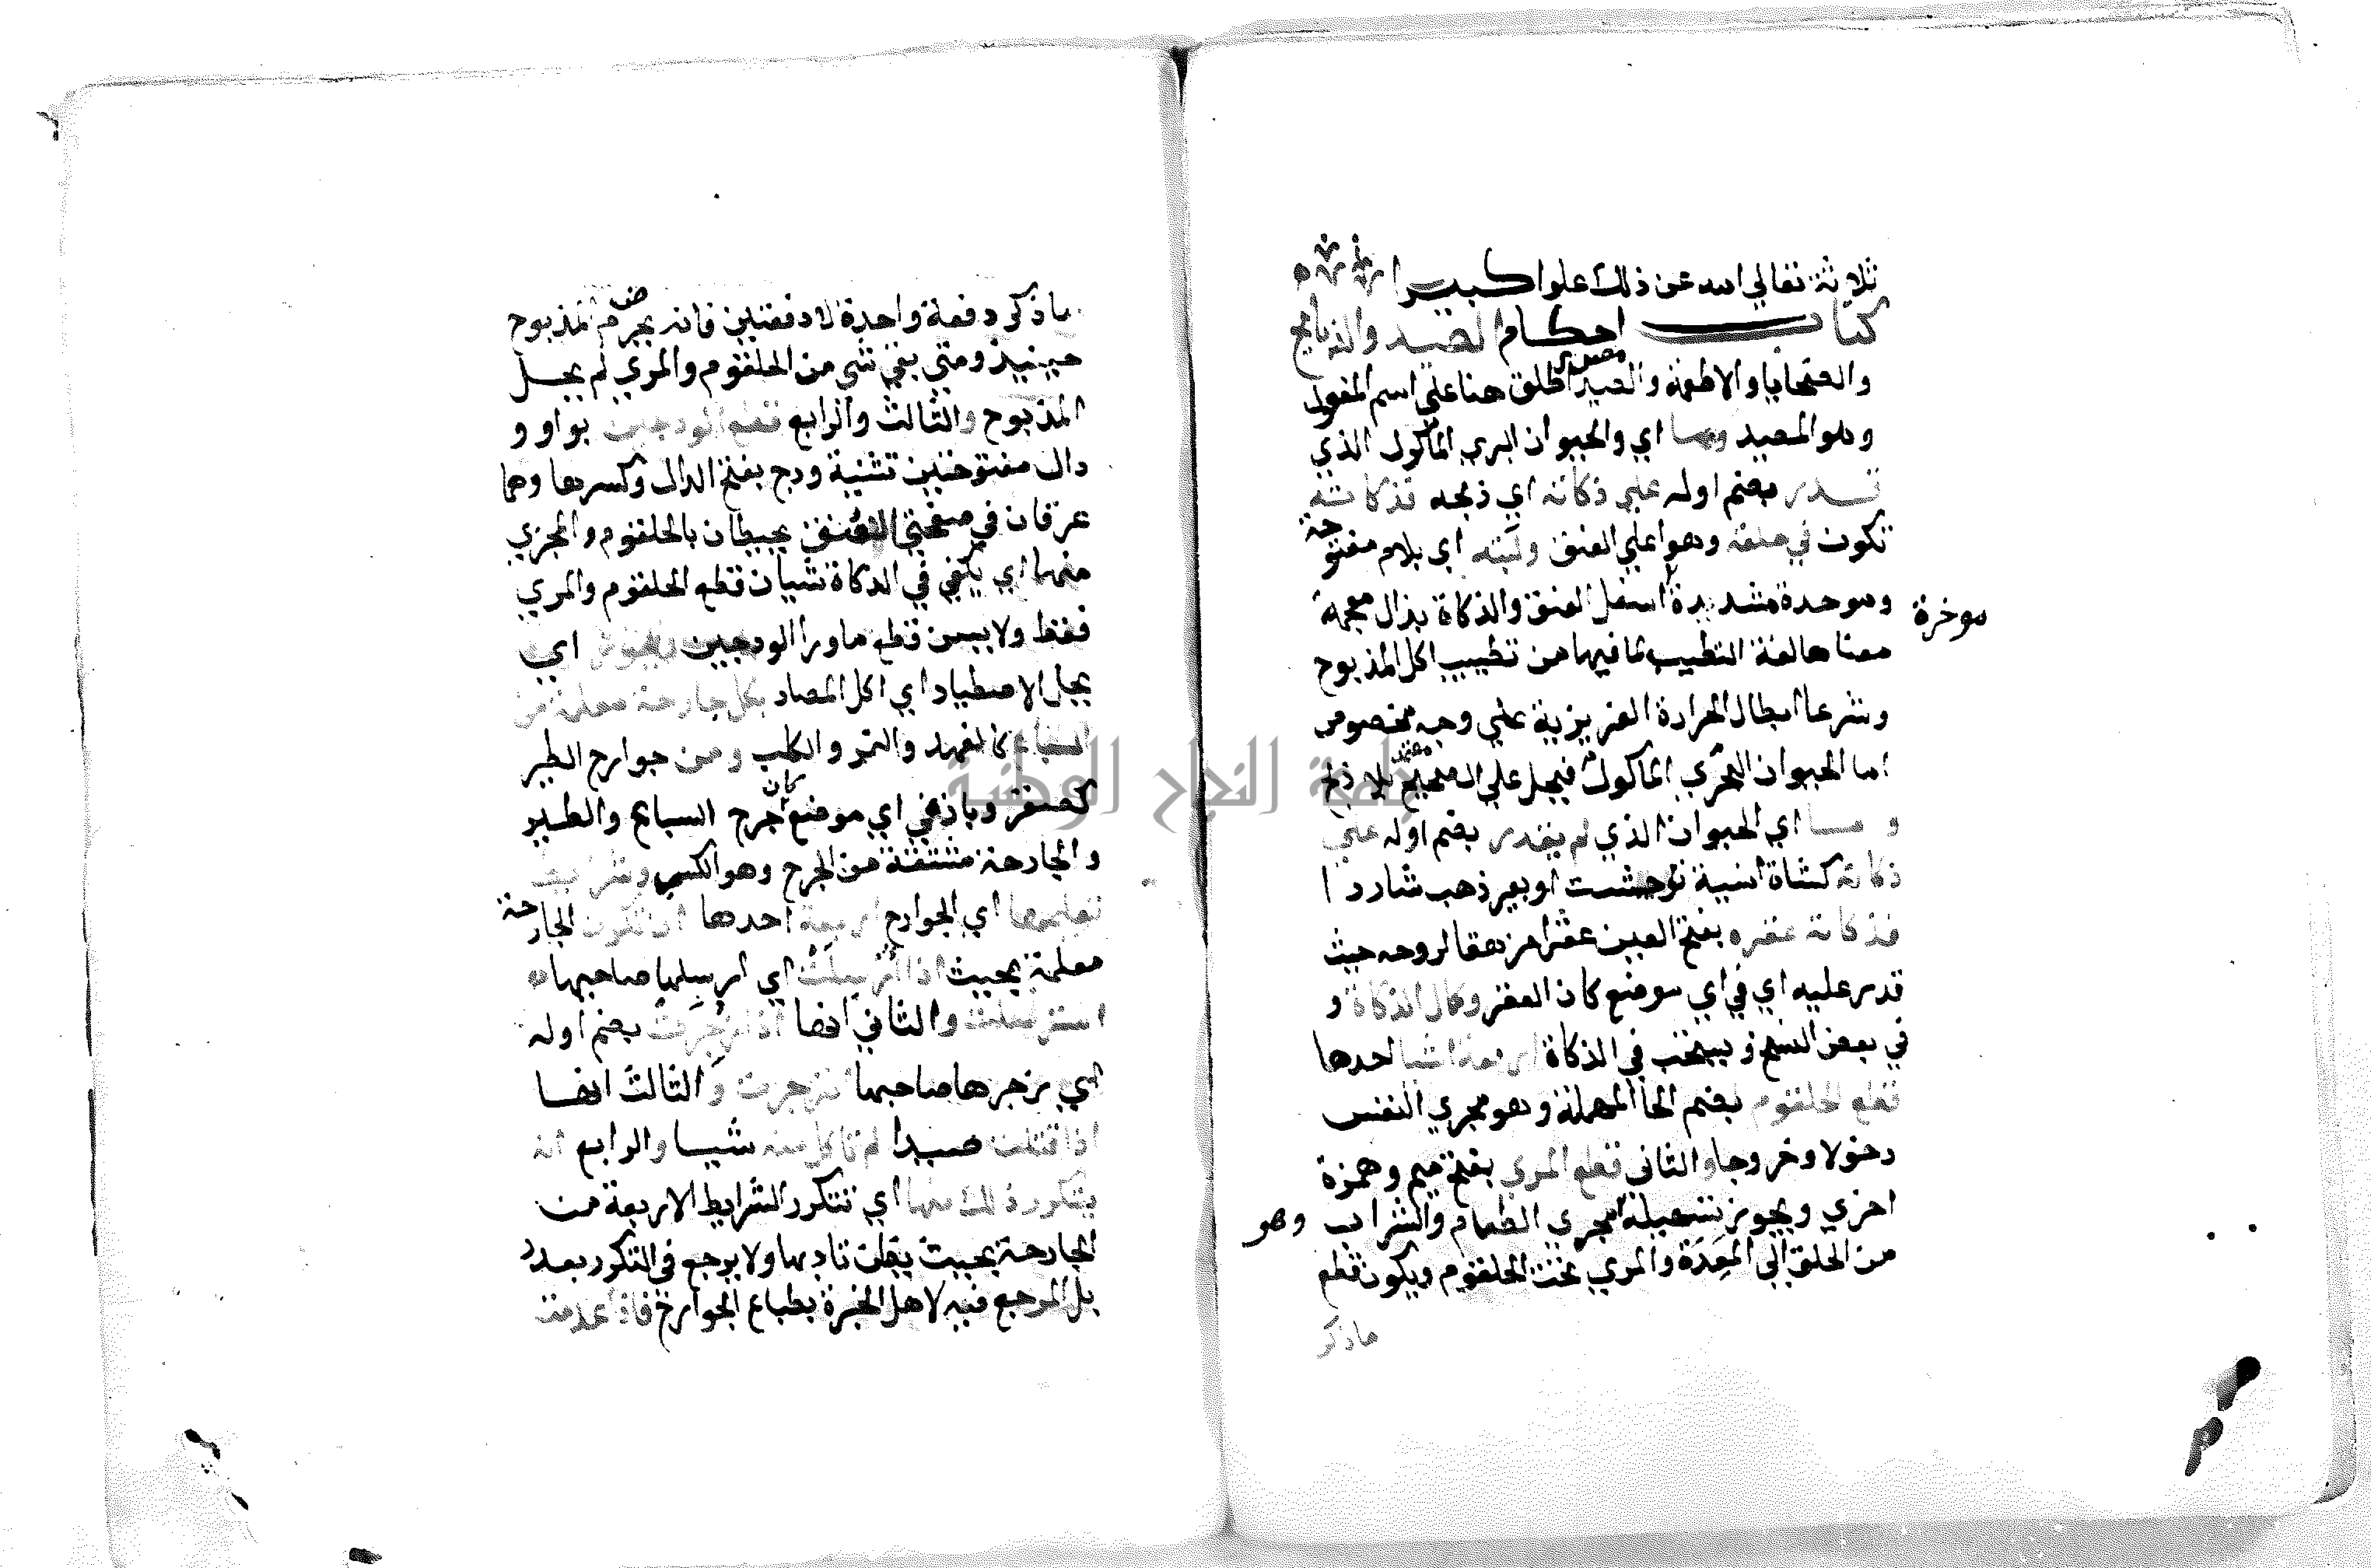 ثلاثة تعالي الله عن ذلك علوا كبيرا
كتاب احكام الصيد والذبايح
والضحايا والاطعمة والصيد مصدر اطلق هنا علي اسم المفعول
وهو المصيد وما اي والحيوان البري الماكول الذي
قدر بضم اوله علي ذكاته اي ذبحه فذكاته
تكون في حلقه وهو اعلي العنق ولبته اي بلام مفتوحة
وموحدة مشددة اسفل العنق والذكاة بذال معجمة
موخرة
معناها لغة التطييب لما فيها من تطييب اكل المذبوح
وشرعا ابطال الحرارة الغريزية علي وجه مخصوص
اما الحيوان البحري الماكول فيحل علي الصحيح بلا ذبح
وما اي الحيوان الذي لم يقدر بضم اوله علي
ذكاته كشاة انسية توحشت او بعير ذهب شاردا
فذكاته عقره بفتح العين عقرا مزهقا لروحه حيث
قدر عليه اي في اي موضع كان العقر وكمال الذكاة و
في بعض النسخ ويستحب في الذكاة اربعة اشيا احدها
قطع الحلقوم بضم الحا المهملة وهو مجري النفس
دخولا وخروجا والثاني قطع المري بفتح ميم وهمزة
اخري ويجوز تسهيله مجري الطعام والشراب وهو
من الحلق الي المعدة والمري تحت الحلقوم ويكون قطع
ماذكر
ماذكر دفعة واحدة لا دفعتين فانه يحرم المذبوح
حينيذ ومتي بقي شي من الحلقوم والمري لم يحل
المذبوح والثالث والرابع قطع الودجين بواو و
دال مفتوحتين تثنية ودج بفتح الدال وكسرها وهما
عرقان في صفحتي العنق يحيطان بالحلقوم والمجزي
منها اي يكفي في الذكاة شيان قطع الحلقوم والمري
فقط ولا يسن قطع ماورا الودجين ويجوز اي
يحل الاصطياد اي اكل المصاد بكل جارحة معلمة من
السباع كالفهد والنمر والكلب ومن جوارح الطير
كصقر وباز في اي موضع كان جرح السبايع والطير
والجارحة مشتقة من الجرح وهو الكسب وشرايط
تعليمها اي الجوارح اربعة احدها ان تكون الجارحة
معلمة بحيث اذا ارسلت اي ارسلها صاحبها
استرسلت والثاني انها اذا زجرت بضم اوله
اي زجرها صاحبها انزجرت والثالث انها
اذا قتلت صيدا لم تاكل منه شييا والرابع ان
يتكرر ذلك منها اي تتكرر الشرايط الاربعة من
الجارحة بحيث يظن تادبها ولا يرجع في التكرر بعدد
بل المرجع فيه لاهل الخبرة بطباع الجوارح فاذا عدمت